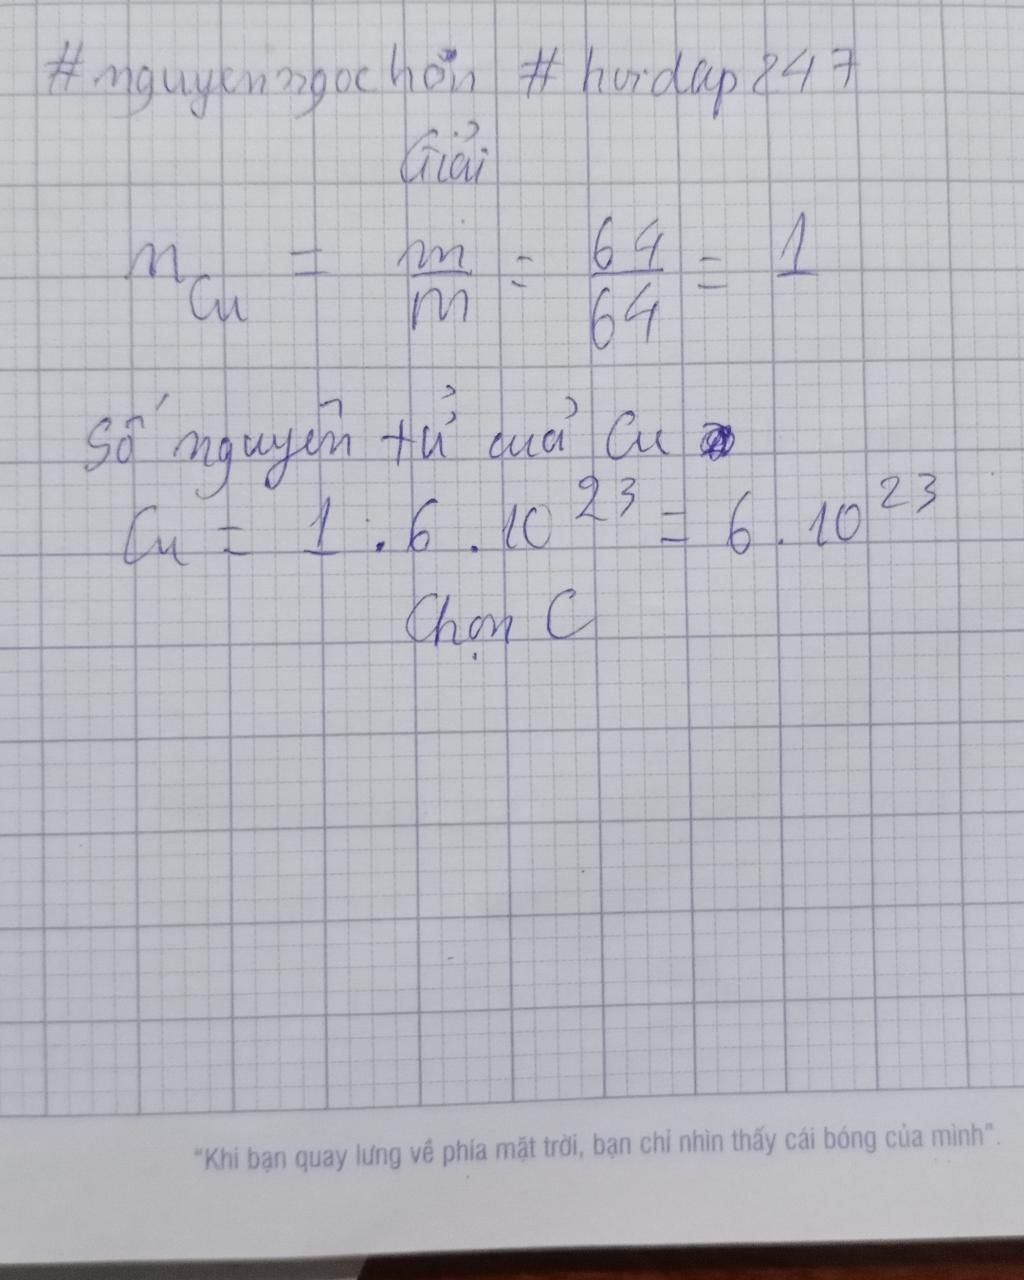 #nguyenngochôn #hoidap247
Giải
n Cu = m/m = 64/64 = 1
Số nguyên tử của Cu
Cu = 1 . 6 . 10^23 = 6 . 10^23
Chọn C
"Khi bạn quay lưng về phía mặt trời, bạn chỉ nhìn thấy cái bóng của mình".